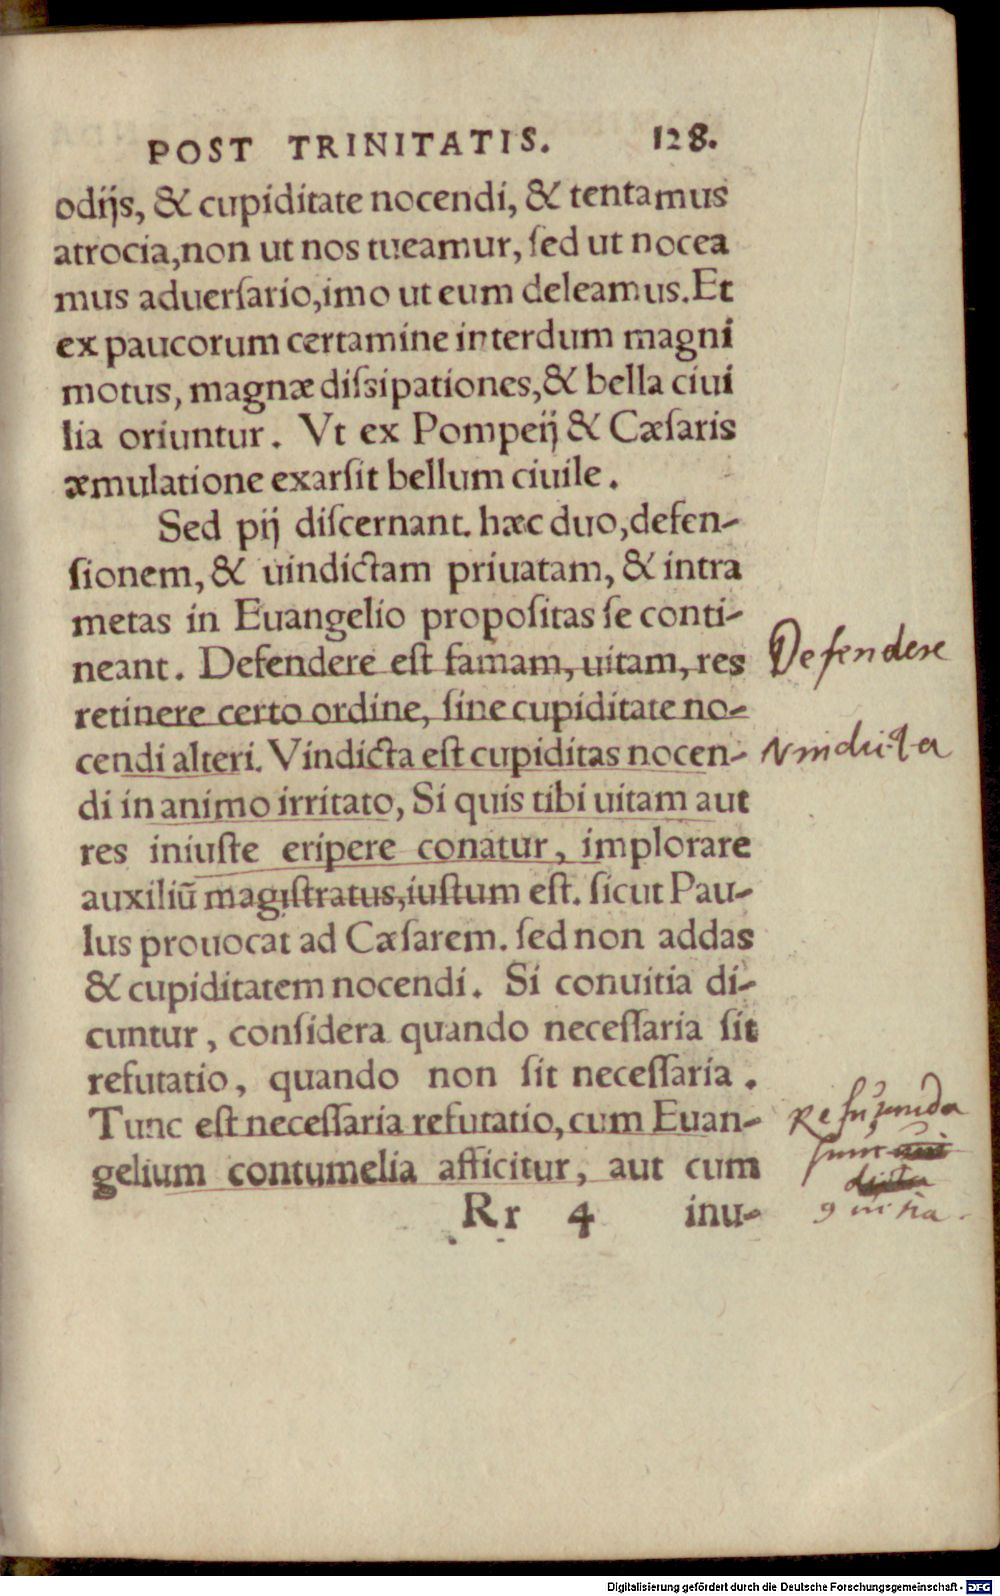 POST TRINITATIS. 128.
odijs, & cupiditate nocendi, & tentamus
atrocia, non ut nos tueamur, ſed ut nocea
mus aduerſario, imo ut eum deleamus. Et
ex paucorum certamine interdum magni
motus, magnæ diſsipationes, & bella ciui
lia oriuntur. Vt ex Pompeij & Cæſaris
æmulatione exarſit bellum ciuile.
Sed pij diſcernant. hæc duo, defen-
ſionem, & uindictam priuatam, & intra
metas in Euangelio propoſitas ſe conti-
neant. Defendere eſt famam, uitam, res
Defendere
retinere certo ordine, ſine cupiditate no-
cendi alteri. Vindicta eſt cupiditas nocen-
Vindicta
di in animo irritato, Si quis tibi uitam aut
res iniuſte eripere conatur, implorare
auxiliū magiſtratus, iuſtum eſt. ſicut Pau-
lus prouocat ad Cæſarem. ſed non addas
& cupiditatem nocendi. Si conuitia di-
cuntur, conſidera quando neceſſaria ſit
refutatio, quando non ſit neceſſaria.
Tunc eſt neceſſaria refutatio, cum Euan-
gelium contumelia afficitur, aut cum
ſunt
Rr 4 inu-
Digitalisierung gefördert durch die Deutsche Forschungsgemeinschaft - DFG